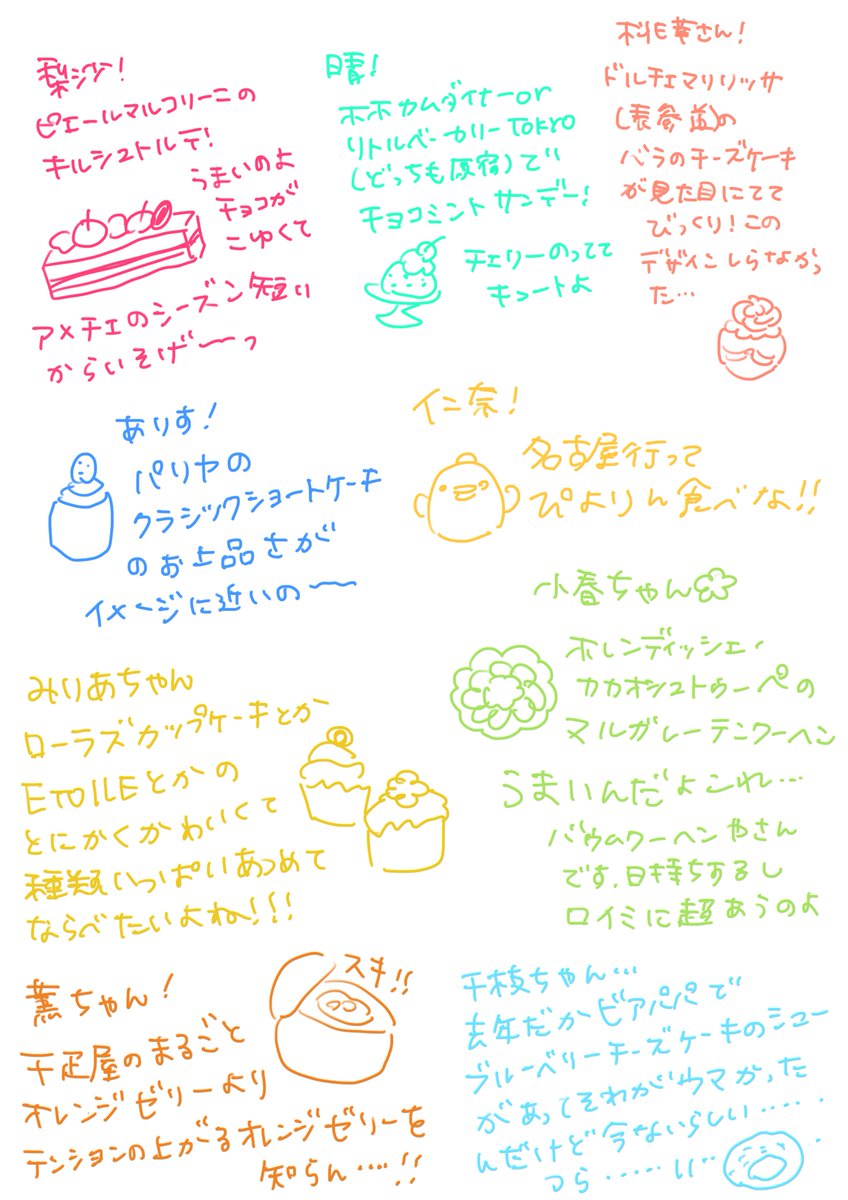 梨沙!
ピエールマルコリーニの
キルシュトルテ!
うまいのよ
チョコが
こゆくて
アメチェのシーズン短い
からいそげ〜〜っ
晴!
ホホカムダイナーor
リトルベーカリーTOKYO
(どっちも原宿)で
チョコミントサンデー!
チェリーのってて
キュートよ
桃華さん!
ドルチェマリリッサ
(表参道)の
バラのチーズケーキ
が見た目にてて
びっくり!この
デザインしらなかっ
た…
ありす!
パリヤの
クラシックショートケーキ
のお上品さが
イメージに近いの〜〜
仁奈!
名古屋行って
ぴよりん食べな!!
小春ちゃん
ホレンディッシェ・
カカオシュトゥーベの
マルガレーテンクーヘン
うまいんだよこれ…
バウムクーヘンやさん
です.日持ちするし
ロイミに超あうのよ
みりあちゃん
ローラズカップケーキとか
ETOILEとかの
とにかくかわいくて
種類いっぱいあつめて
ならべたいよね!!!
薫ちゃん!
スキ!!
千疋屋のまるごと
オレンジゼリーより
テンションの上がるオレンジゼリーを
知らん……!!
千枝ちゃん…
去年だかビアパパで
ブルーベリーチーズケーキのシュー
があってそれがウマかった
んだけど今ないらしい……
つら……い…